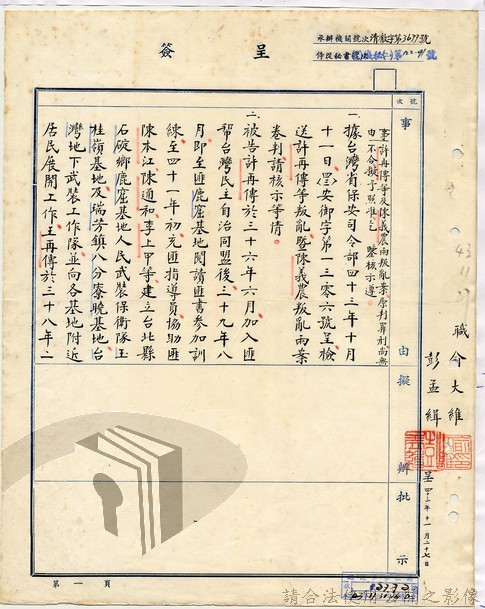 簽呈
承辦機關號次 清澈字第3677號
號次
事由擬辦批示
事由
計再傳等及陳義農兩叛亂案原判罪刑尚無
不合擬予照准乞鑒核示遵
一、據台灣省保安司令部四十三年十月
十一日(43)安御字第一三○六號呈檢
送計再傳等叛亂暨陳義農叛亂兩案
卷判請核示等情
二、被告計再傳於三十六年六月加入匪
幫台灣民主自治同盟後三十九年八
月即至匪鹿窟基地閱讀匪書參加訓
練至四十一年初充匪指導員協助匪
陳本江陳通和李上甲等建立台北縣
石碇鄉鹿窟基地人民武裝保衛隊玉
桂嶺基地及瑞芳鎮八分寮晚基地台
灣地下武裝工作隊並向各基地附近
居民展開工作王再傳於三十八年二
職俞大維
彭孟緝
呈四十三年十一月二十七日
第一頁
請合法使用
之影像